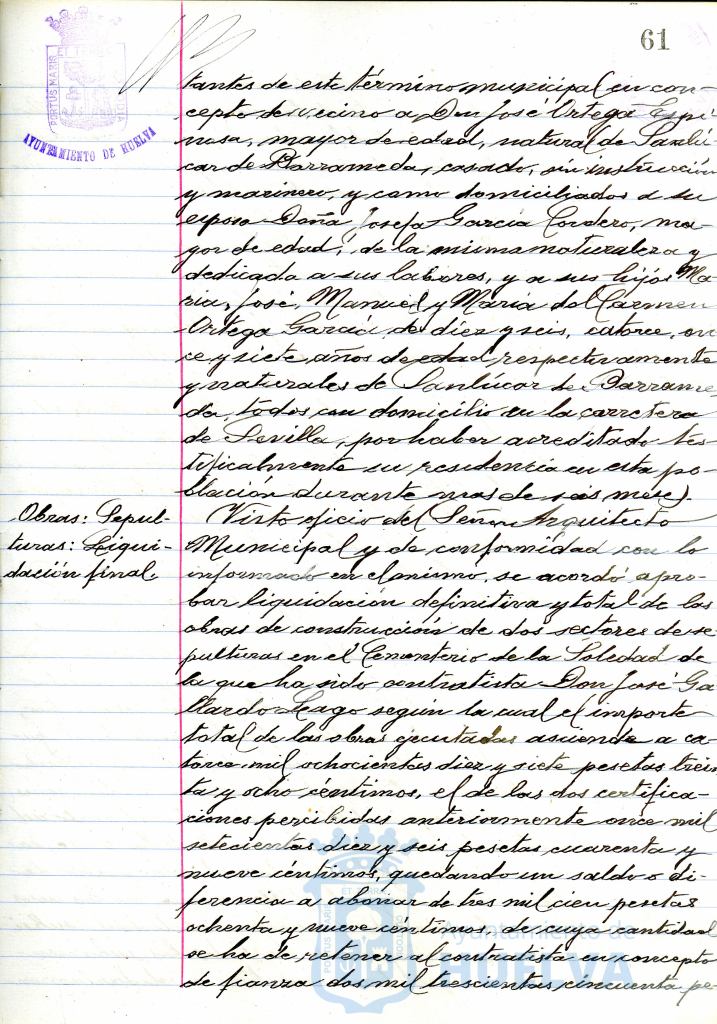 61
PORTUS MARIS
ET TERRE
AYUNTAMIENTO DE HUELVA
tantes de este término municipal en con-
cepto de vecino a Don José Ortega Espi-
nosa, mayor de edad, natural de Sanlú-
car de Barrameda, casado, sin instrucción
y marinero, y como domiciliados a su
esposa Doña Josefa García Cordero, ma-
yor de edad, de la misma naturaleza y
dedicada a sus labores, y a sus hijos Ma-
ria, José, Manuel y María del Carmen
Ortega García de diez y seis, catorce, on-
ce y siete años de edad respectivamente
y naturales de Sanlúcar de Barrame-
da, todos con domicilio en la carretera
de Sevilla, por haber acreditado tes-
tificalmente su residencia en esta po-
blación durante mas de seis meses.
Obras: Sepul-
turas: Liqui-
dación final.
Visto oficio del Señor Arquitecto
Municipal y de conformidad con lo
informado en el mismo, se acordó apro-
bar liquidación definitiva y total de las
obras de construcción de dos sectores de se-
pulturas en el Cementerio de la Soledad de
la que ha sido contratista Don José Ga-
llardo Leago según la cual el importe
total de las obras ejecutadas asciende a ca-
torce mil ochocientas diez y siete pesetas trein-
ta y ocho céntimos, el de las dos certifica-
ciones percibidas anteriormente once mil
setecientas diez y seis pesetas cuarenta y
nueve céntimos, quedando un saldo o di-
ferencia a abonar de tres mil cien pesetas
ochenta y nueve céntimos, de cuya cantidad
se ha de retener al contratista en concepto
de fianza dos mil trescientas cincuenta pe-
Ayuntamiento de
HUELVA